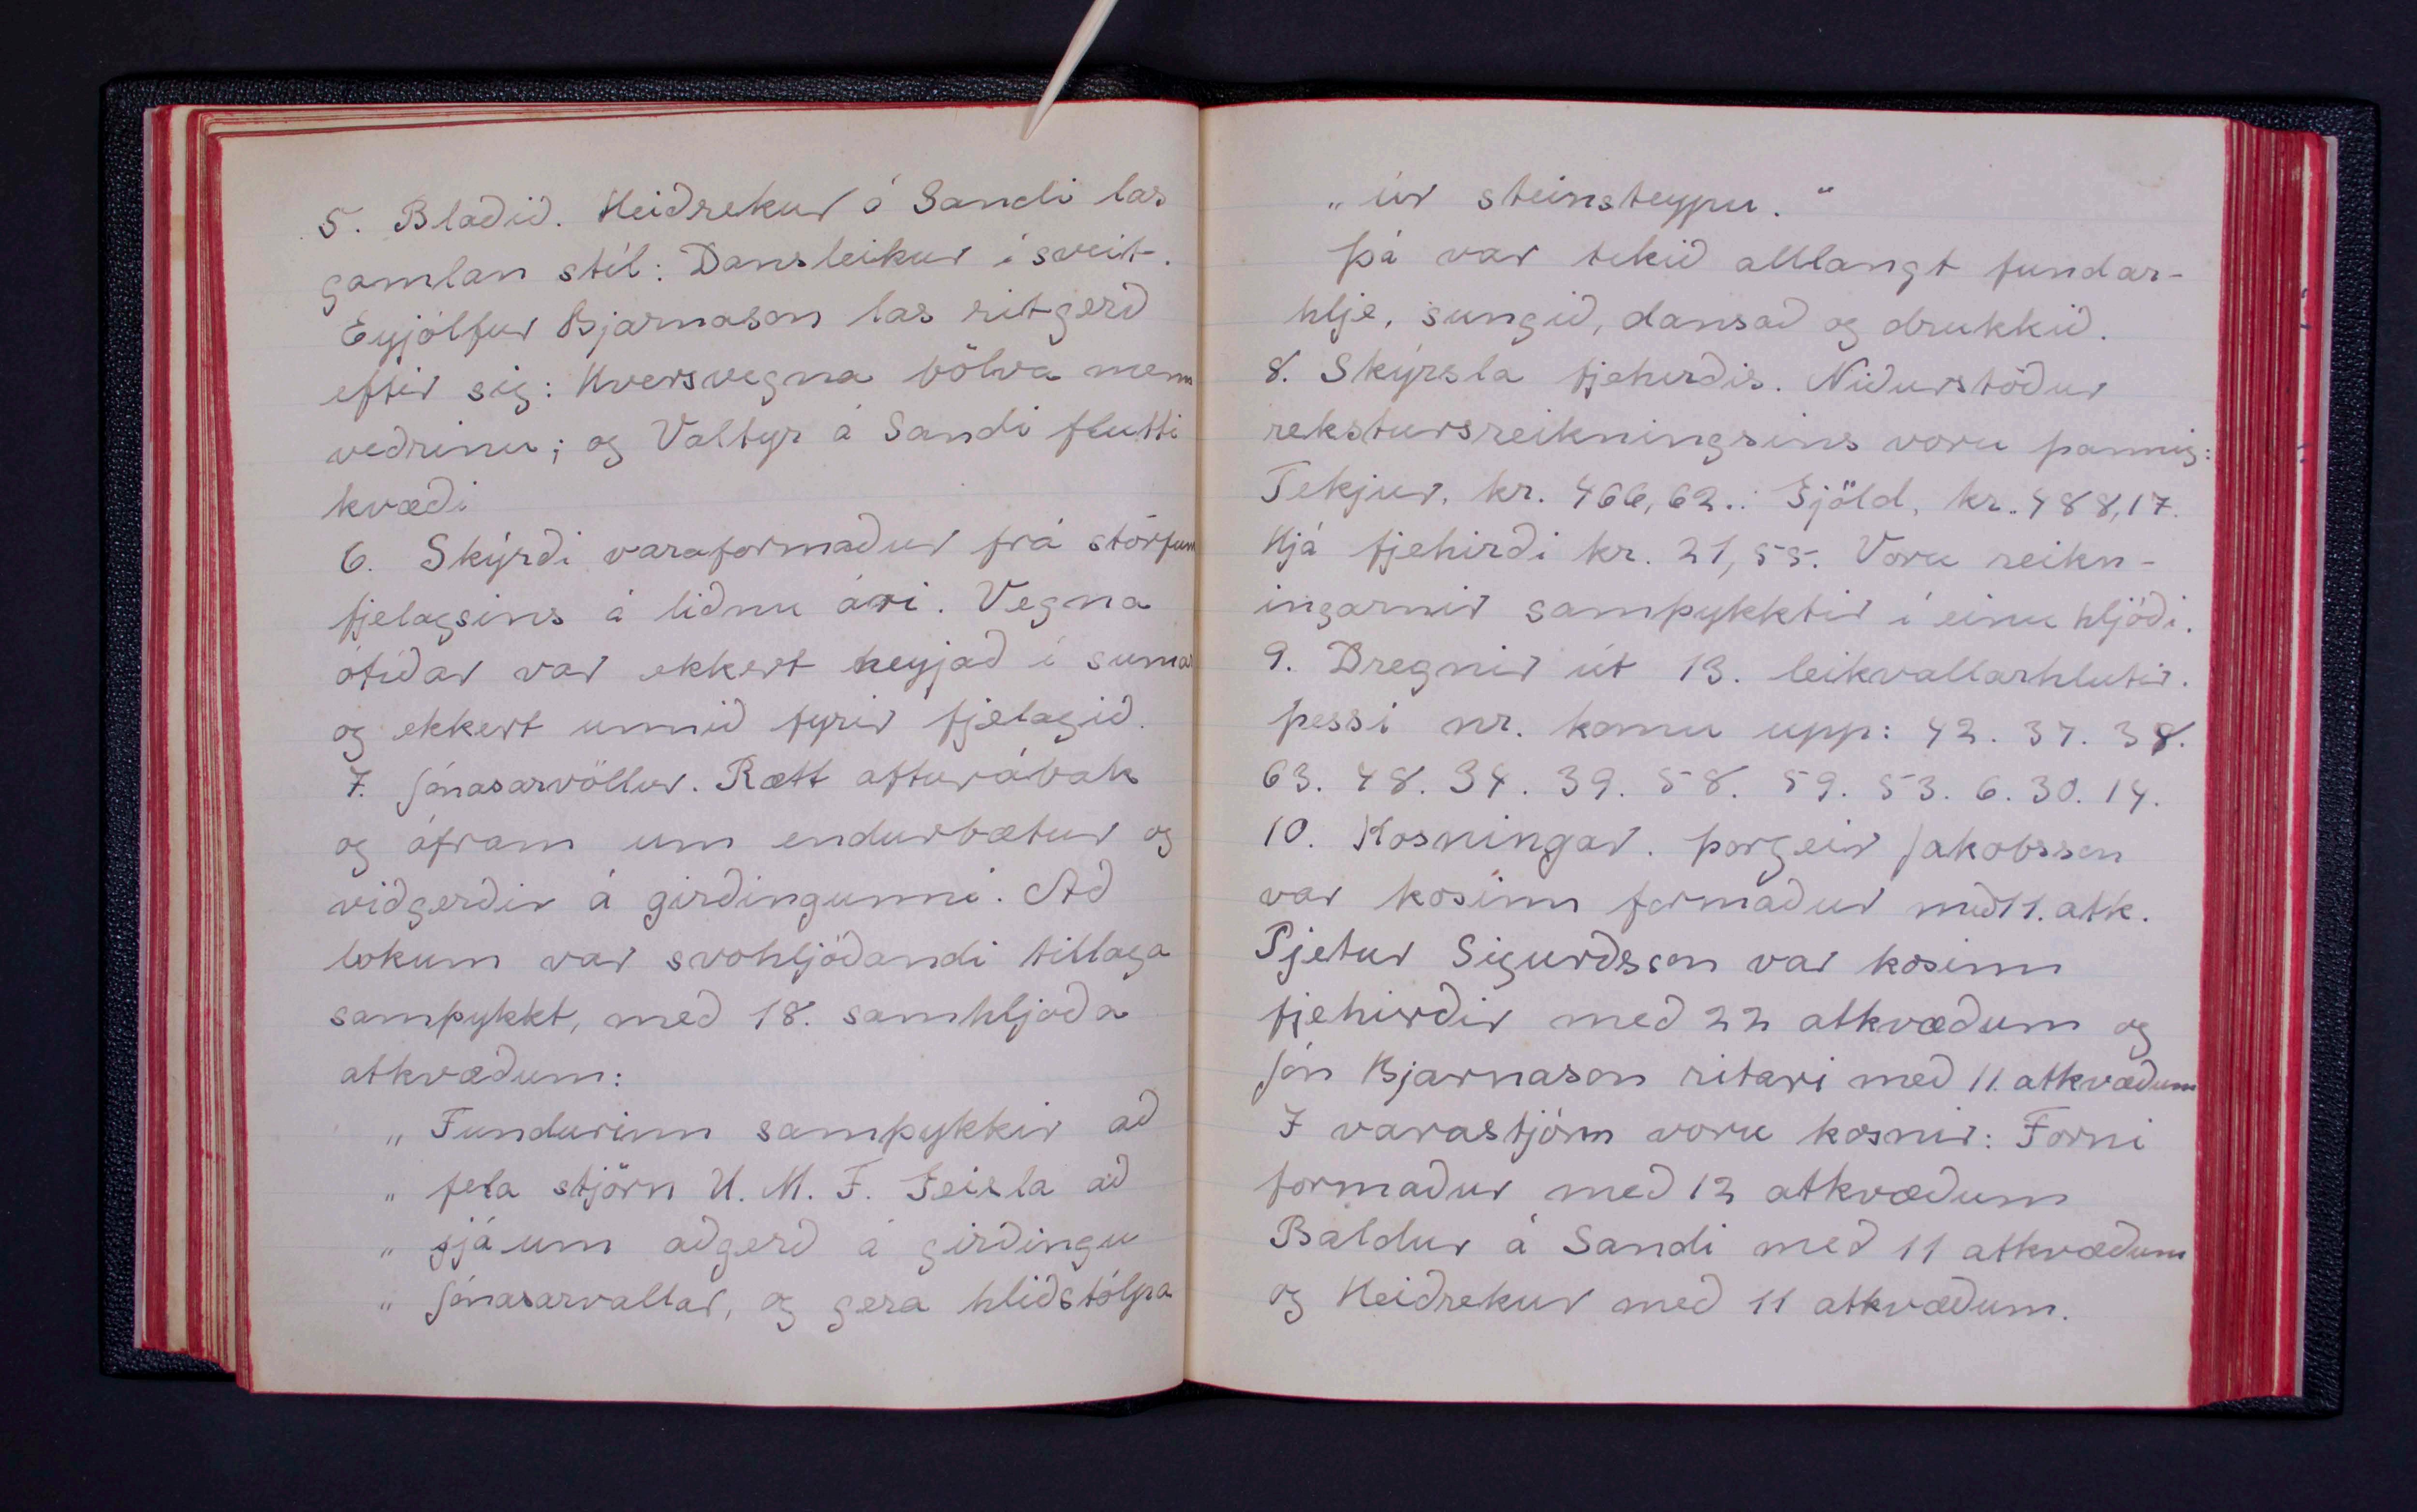 5. Blaðið. Heiðrekur á Sandi las
gamlan stíl: Dansleikur í sveit.
Eyjólfur Bjarnason las ritgerð
eftir sig: Hversvegna bölva menn
veðrinu; og Valtyr á Sandi flutti
kvæði
6. Skýrði varaformaður frá störfum
fjelagsins á liðnu ári. Vegna
ótíðar var ekkert heyjað í sumar
og ekkert unnið fyrir fjelagið.
7. Jónasarvöllur. Rætt afturábak
og áfram um endurbætur og
viðgerðir á girðingunni. Að
lokum var svohljóðandi tillaga
samþykkt, með 18. samhljóða
atkvæðum:
„ Fundurinn samþykkir að
„ fela stjórn U. M. F. Geisla að
„ sjá um aðgerð á girðingu
„ Jónasarvallar, og gera hliðstólpa
„ úr steinsteypu. “
Þá var tekið alllangt fundar-
hlje, sungið, dansað og drukkið.
8. Skýrsla fjehirðis. Niðurstöður
rekstursreikningsins voru þannig:
Tekjur, kr. 466,62.: Gjöld, kr. 488,17.
Hjá fjehirði kr. 21,55. Voru reikn-
ingarnir samþykktir í einu hljóði.
9. Dregnir út 13. leikvallarhlutir.
þessi nr. komu upp: 42. 37. 38.
63. 48. 34. 39. 58. 59. 53. 6. 30. 14.
10. Kosningar. Þorgeir Jakobsson
var kosinn formaður með 11. atk.
Pjetur Sigurðsson var kosinn
fjehirðir með 22 atkvæðum og
Jón Bjarnason ritari með 11. atkvæðum
I varastjórn voru kosnir: Forni
formaður með 12 atkvæðum
Baldur á Sandi með 11 atkvæðum
og Heiðrekur með 11 atkvæðum.